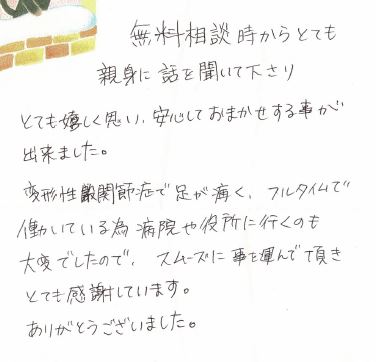 無料相談時からとても
親身に話を聞いて下さり
とても嬉しく思い、安心しておまかせする事が
出来ました。
変形性股関節症で足が痛く、フルタイムで
働いている為病院や役所に行くのも
大変でしたので、スムーズに事を運んで頂き
とても感謝しています。
ありがとうございました。